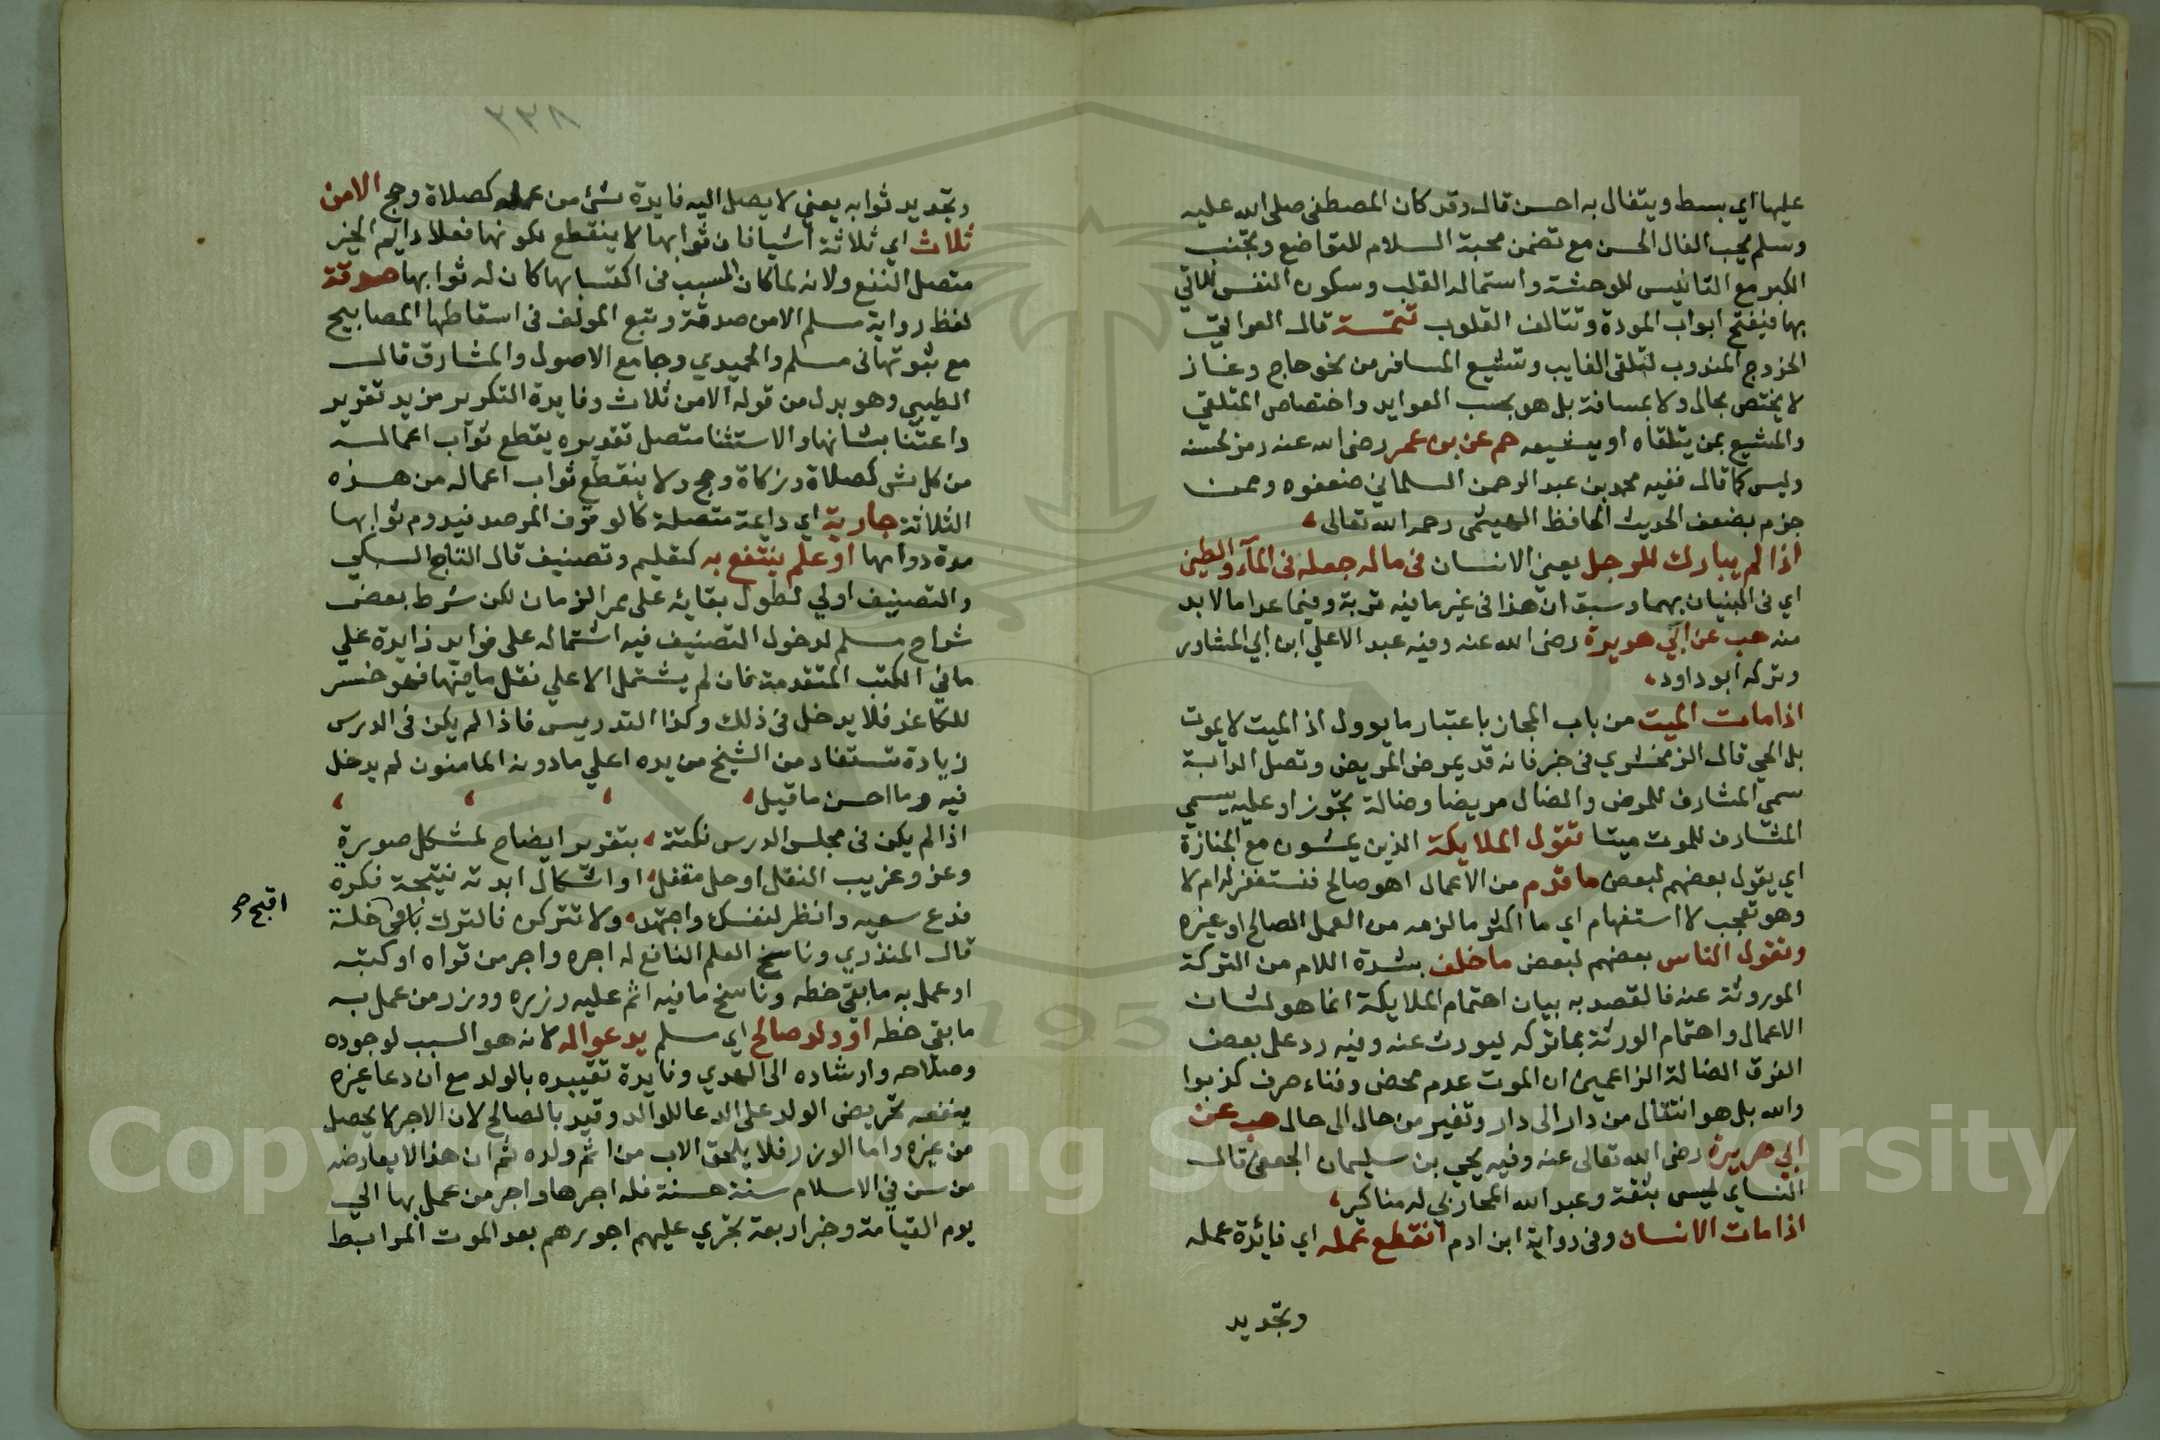 عليها اي بسط ويتفال به احسن قال وقد كان المصطفى صلى الله عليه
وسلم يحب الفال الحسن مع تضمن محبة السلام للتواضع وتجنب
الكبر مع التانيس للوحشة واستمالة القلب وسكون النفس للاتي
بها فيفتح ابواب المودة وتتالف القلوب تتمة قال العراقي
الخروج المندوب لتلقى الغايب وتشييع المسافر من نحو حاج وغاز
لا يختص بحال ولا بمسافة بل هو بحسب العوايد واختصاص المتلقي
والمشيع بمن يتلقاه او يشيعه حم عن بن عمر رضى الله عنه رمز لحسنه
وليس كما قال ففيه محمد بن عبد الرحمن السلماني ضعفوه وممن
جزم بضعف الحديث الحافظ الهيثمى رحمه الله تعالى
اذا لم يبارك للرجل يعني الانسان فى ماله جعله فى المآء والطين
اي فى البنيان بهما وسبق ان هذا فى غير ما فيه قربة وفيما عدا ما لا بد
منه هب عن ابي هريرة رضى الله عنه وفيه عبد الاعلي ابن ابي المشاور
وتركه ابو داود
اذا مات الميت من باب المجاز باعتبار ما يوول اذ الميت لا يموت
بل الحي قال الزمخشري فى خبر فانه قد يمرض المريض وتضل الدابة
سمى المشارف للمرض والضال مريضا وضالة تجوزا وعليه يسمي
المشارف للموت ميتا تقول الملايكة الذين يمشون مع الجنازة
اي يقول بعضهم لبعض ما قدم من الاعمال اهو صالح فنستغفر له ام لا
وهو تعجب لا استفهام اي ما اكثر ما لزمه من العمل الصالح او غيره
وتقول الناس بعضهم لبعض ما خلف بشدة اللام من التركة
الموروثة عنه فالقصد به بيان اهتمام الملايكة انما هو لشان
الاعمال واهتمام الورثة بما تركه ليورث عنه وفيه رد على بعض
الفرق الضالة الزاعمين ان الموت عدم محض وفناء صرف كذبوا
والله بل هو انتقال من دار الى دار وتغير من حال الى حال هب عن
ابي هريرة رضى الله تعالى عنه وفيه يحيي بن سليمان الجعفى قال
النساي ليس بثقة وعبد الله المحاربي له مناكير
اذا مات الانسان وفى رواية ابن ادم انقطع عمله اي فائدة عمله
وتجديد
٣٣٨
وتجديد ثوابه يعني لا يصل اليه فايدة شئ من عمله كصلاة وحج الا من
ثلاث اي ثلاثة اشيا فان ثوابها لا ينقطع لكونها فعلا دايم الخير
متصل النفع ولانه لما كان السبب فى اكتسابها كان له ثوابها صدقة
لفظ رواية مسلم الا من صدقة وتبع المولف فى اسقاطها المصابيح
مع ثبوتها فى مسلم والحميدي وجامع الاصول والمشارق قال
الطيبي وهو بدل من قوله الا من ثلاث وفايدة التكرير مزيد تقرير
واعتنا بشانها والاستثنا متصل تقديره يقطع ثوآب اعماله
من كل شى كصلاة وزكاة وحج ولا ينقطع ثواب اعماله من هذه
الثلاثة جارية اي دايمة متصلة كالوقوف المرصد فيدوم ثوابها
مدة دوامها او علم ينتفع به كتعليم وتصنيف قال التاج السبكي
والتصنيف اولي لطول بقايه على ممر الزمان لكن شرط بعض
شراح مسلم لدخول التصنيف فيه اشتماله على فوايد زايدة علي
ما فى الكتب المتقدمة فان لم يشتمل الا علي نقل ما فيها فهو خسر
للكاغد فلا يدخل فى ذلك وكذا التدريس فاذا لم يكن فى الدرس
زيادة تستفاد من الشيخ مزيده اعلي ما دونه الماضون لم يدخل
فيه وما احسن ما قيل
اذا لم يكن فى مجلس الدرس نكتة بتقرير ايضاح لمشكل صورة
وعزو غريب النقل او حل مقفل او اشكال ابدته نتيجة فكرة
فدع سعيه وانظر لنفسك واجتهد ولا تتركن فالترك خلة
اقبح صح
قال المنذري وناسخ العلم النافع له اجره واجر من قراه او كتبه
او عمل به ما بقي خطه وناسخ ما فيه اثم عليه وزره ووزر من عمل به
ما بقي خطه او ولد صالح اي مسلم يدعو اله لانه هو السبب لوجوده
وصلاحه وارشاده الى الهدي وفايدة تقييده بالولد مع ان دعا غيره
ينفعه تحريض الولد على الدعا للوالد وقيد بالصالح لان الاجر لا يحصل
من غيره واما الوزر فلا يلحق الاب من اثم ولده ثم ان هذا لا يعارضه
من سن فى الاسلام سنة حسنة فله اجرها واجر من عمل بها الي
يوم القيامة وخبر اربعة تجري عليهم اجورهم بعد الموت المرابط
Copyright © King Saud University
1957